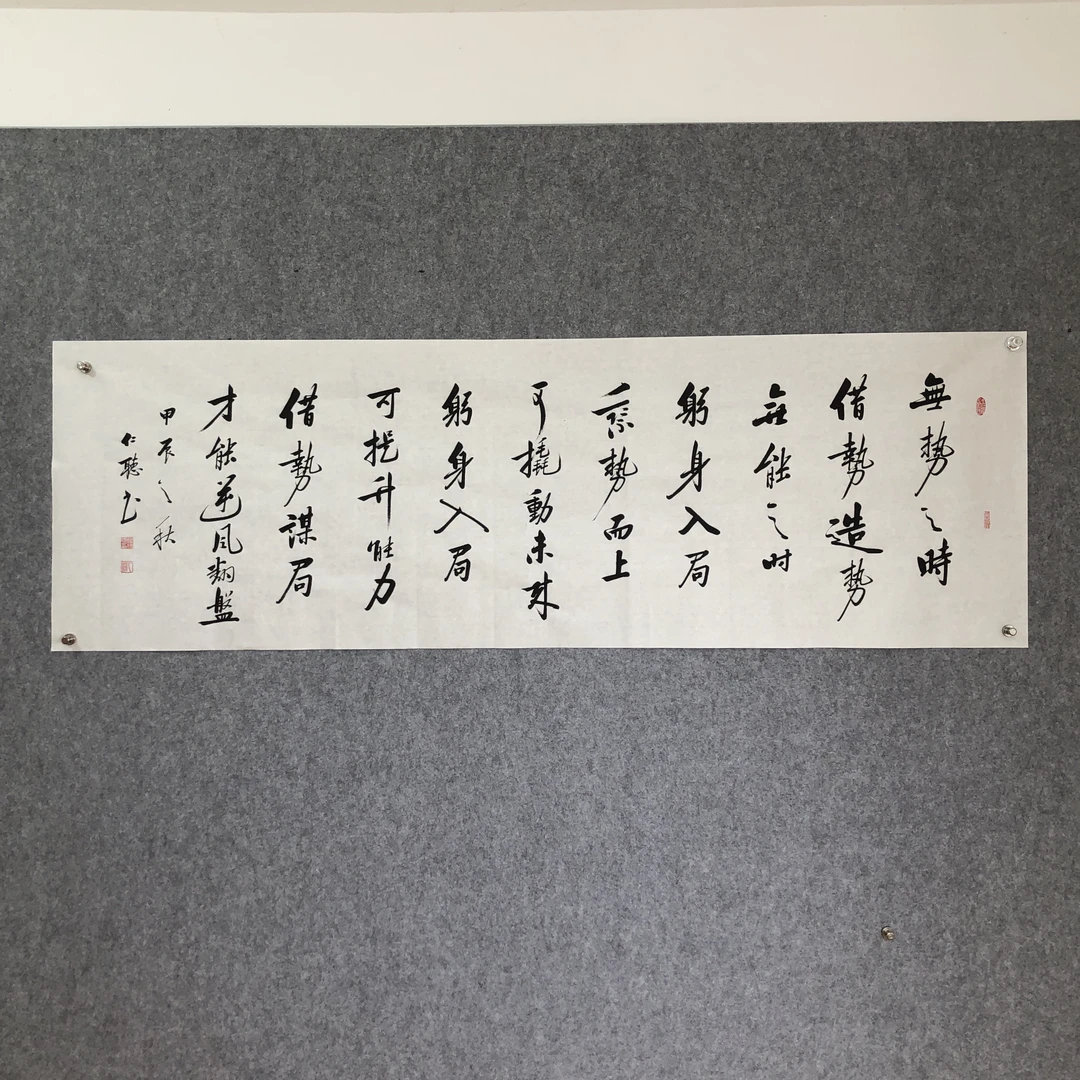 無勢之時
借勢造勢
無能之时
躬身入局
乘勢而上
可撬動未来
躬身入局
可提升能力
借勢謀局
才能逆风翻盤
甲辰之秋
仁聽书